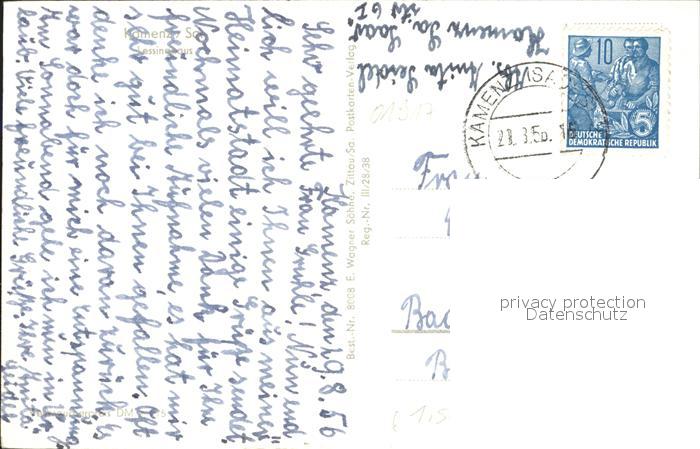 Kamenz Sa.
Lessinghaus
Kamenz, den 19.8.56
Sehr geehrte Frau Grulle! Nun end-
lich will ich Ihnen aus meiner
Heimatstadt einige Grüße senden.
Nochmals vielen Dank für Ihre
freundliche Aufnahme, es hat mir
sehr gut bei Ihnen gefallen. Oft
denke ich noch daran zurück. Es
war doch für mich eine Entspannung.
Am Sonnabend gehe ich nun in Ur-
laub. Viele freundliche Grüße Ihre Anita
Seidel
Best.-Nr. 8008 E. Wagner Söhne, Zittau/Sa. Postkarten-Verlag
Reg.-Nr. III/28/38
Anita Seidel
Kamenz Sa.
KAMENZ (SA
28.8.56. 18
10
5
DEUTSCHE
DEMOKRATISCHE REPUBLIK
Fr
Ba
B
privacy protection
Datenschutz